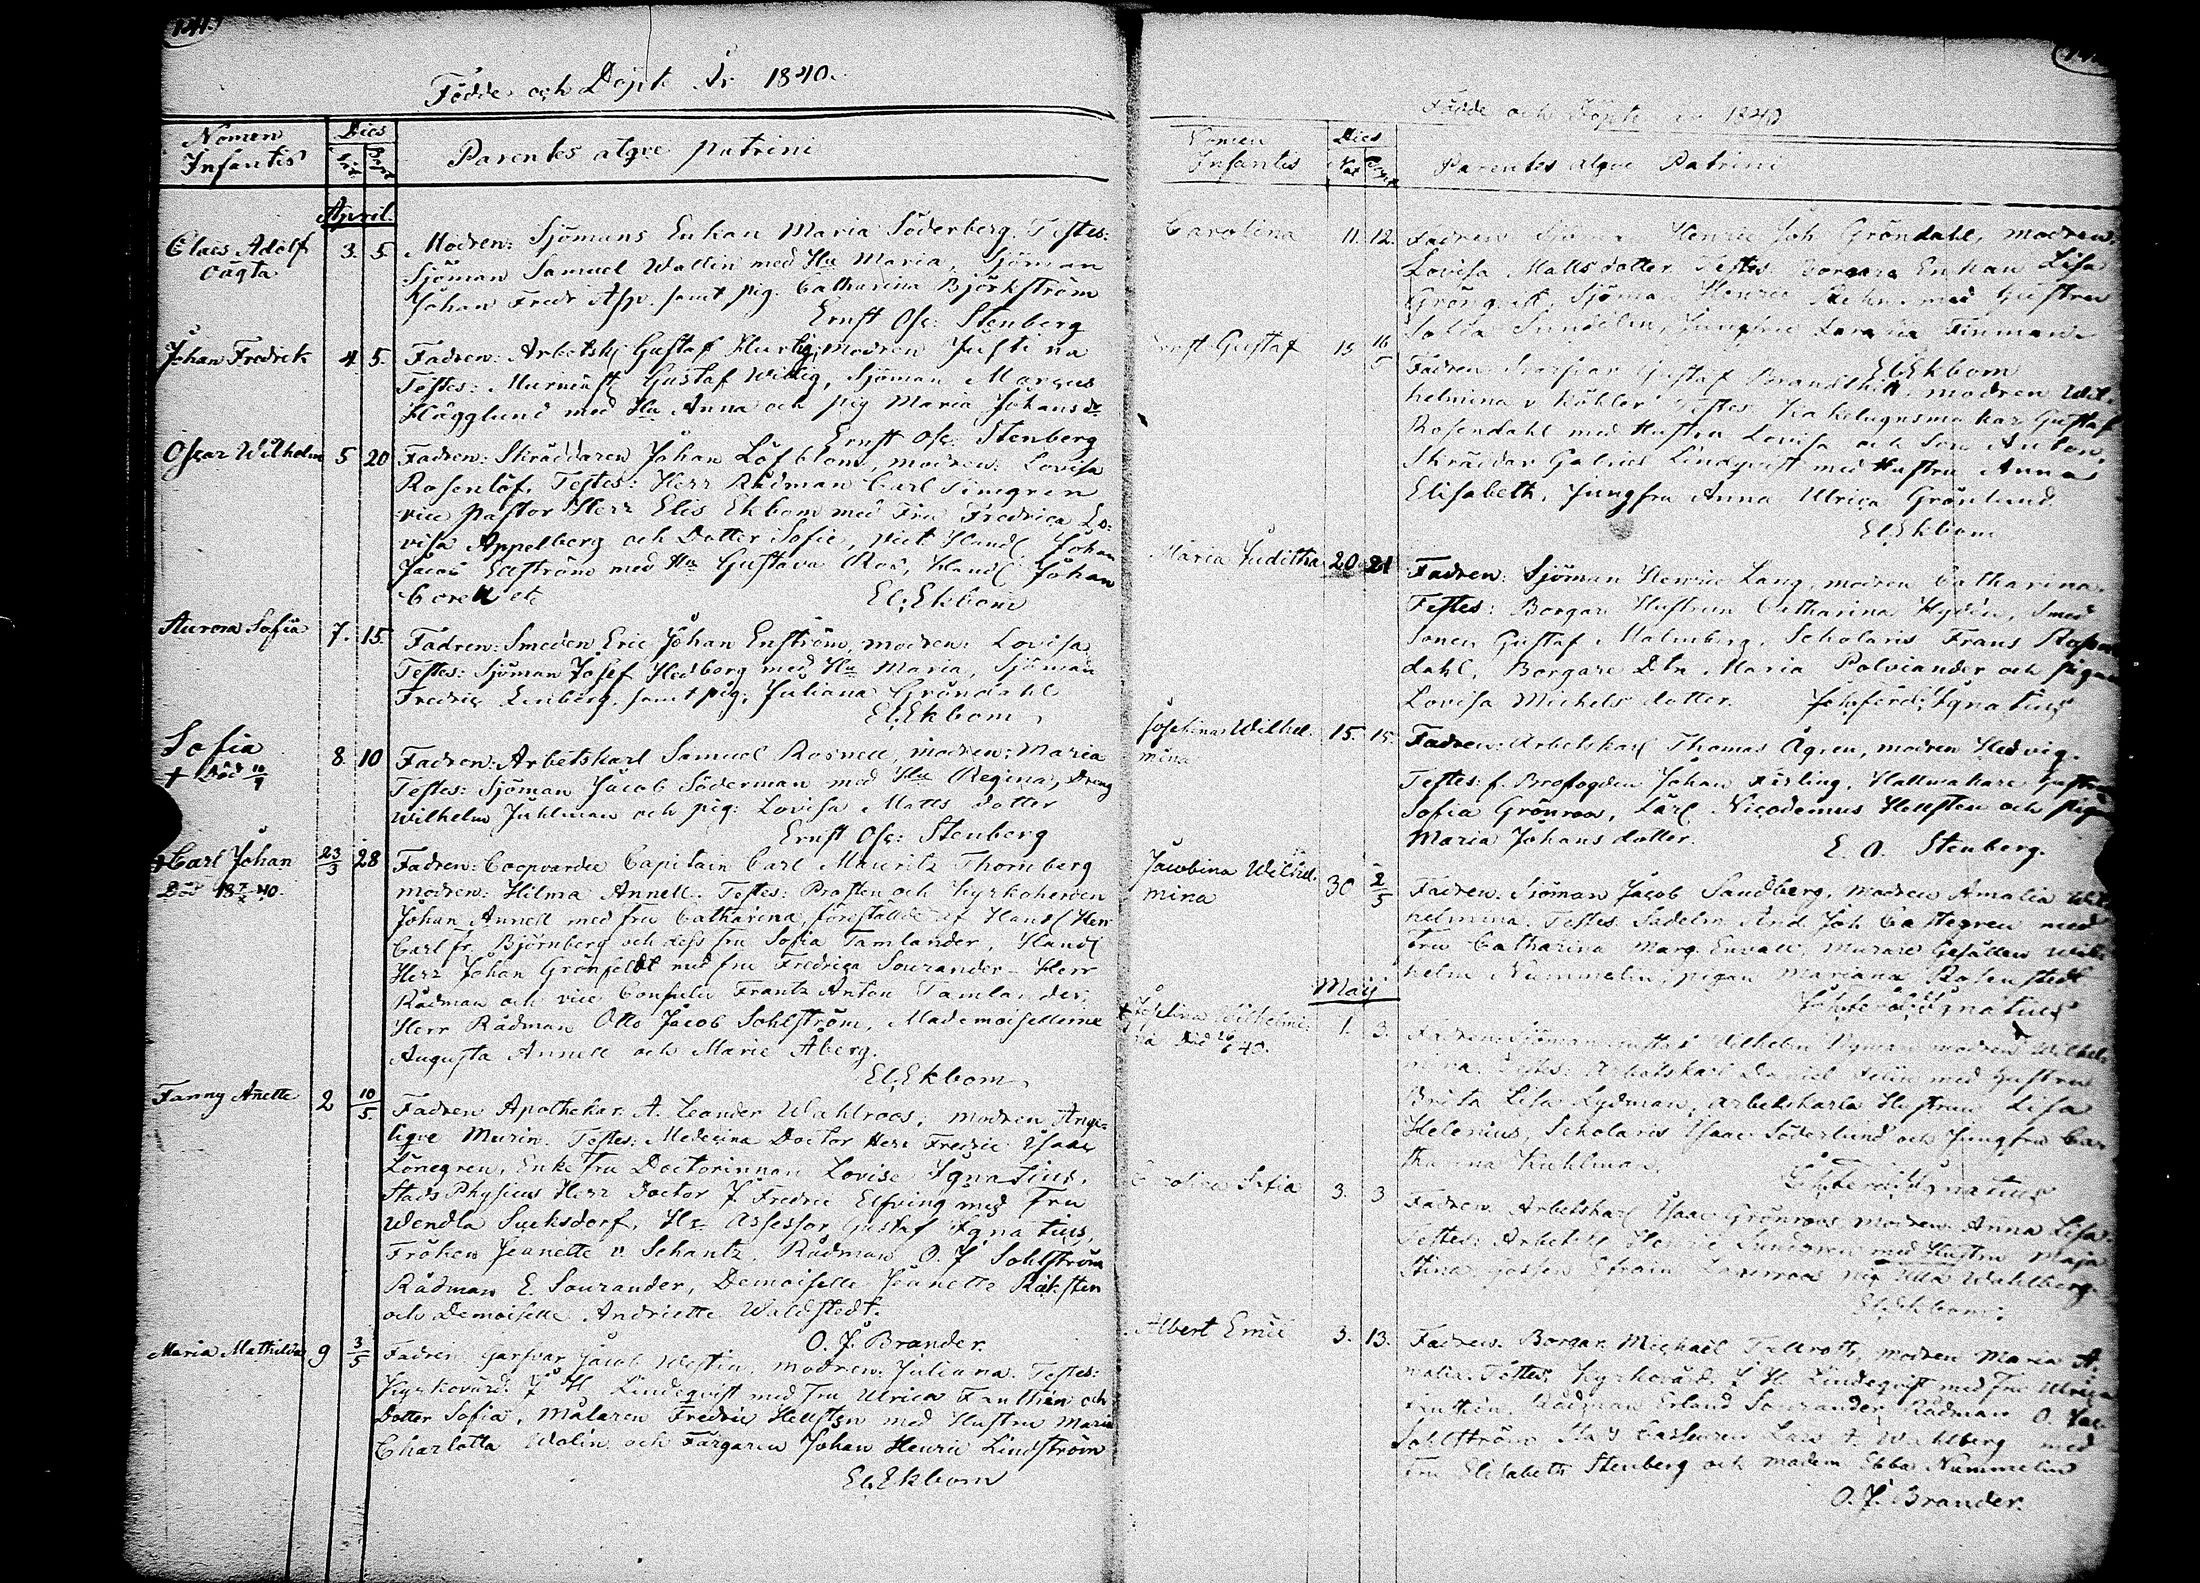 Födde och Döpte År 1840.
Nomen Infantis
Dies
Parentes atque patrini
April.
Claes Adolf
oägta
3. 5.
Modren: Sjömans Enkan Maria Söderberg. Testes:
Sjöman Samuel Wallin med Hu Maria, Sjöman
Johan Fredr Asp. samt pig. Catharina Björkström
Ernst Osc: Stenberg
Johan Fredrik
4 5.
Fadren: Arbetsk Gustaf Hurtig, modren Justina
Testes: Gustaf Willig, Sjöman Marcus
Hägglund med Hu Anna och pig Maria Johans dr
Ernst Osc: Stenberg
Oscar Wilhelm
5 20
Fadren: Skräddaren Johan Löfblom, modren: Lovisa
Rosenlöf. Testes: Herr Rådman Carl Simgren
vice pastor Herr Elis Ekbom med Fru Fredrica Lo-
visa Appelberg och Dotter Sofie, Johan
Jacob Ekström med Hu Gustava Roos, Handl Johan
Borell etc
El: Ekbom
Aurora Sofia
7. 15.
Fadren: Smeden Eric Johan Enström, modren: Lovisa
Testes: Sjöman Josef Hedberg med Hu Maria, Sjöman
Fredric Lenberg, samt pig. Juliana Gröndahl
El: Ekbom
Sofia
+ Död
8 10
Fadren: Arbetskarl Samuel Rosnell, modren: Maria
Testes: Sjöman Jacob Söderman med Hu Regina, Dreng
Wilhelm Juhlman och pig: Lovisa Matts dotter
Ernst Osc: Stenberg
+ Carl Johan
Död 18 7/x 40.
23/3 28
Fadren: Coopvardie Capitain Carl Mauritz Thornberg
modren: Hilma Annell. Testes: Prosten och Kyrkoherden
Johan Annell med fru Catharina, föreställde af Handl Herr
Carl fr. Björnberg och dess fru Sofia Tamlander, Handl
Herr Johan Grönfeldt med fru Fredrica Sourander. Herr
Rådman och vice Consuln Frantz Anton Tamlander,
Herr Rådman Otto Jacob Sohlström, Mademoisellerne
Augusta Annell och Marie Åberg.
El: Ekbom
Fanny Anette
2 10/5
Fadren Apothekar. A. Leander Wahlroos, modren Ange-
lique Murin. Testes: Medicina Doctor Herr Fredric Isaac
Lönegren, Enkefru Doctorinnan Lovise Ignatius,
Stads Physicus Herr Doctor J Fredric Elfving med Fru
Wendla Sucksdorf, Hr Assessor Gustaf Ignatius,
Fröken Jeanette v. Schantz. Rådman O. J Sohlström
Rådman E. Sourander, Demoiselle Jeanette
och Demoiselle Andriette Waldstedt.
O. J. Brander.
Maria Mathilda
9 3/5
Fadren Garfvar Jacob Westin, modren: Juliana. Testes:
Kyrkovärd. J H Lindeqvist med Fru Ulrica Fanthin och
Dotter Sofia, målaren Fredric Hellsten med Hustru Maria
Charlotta Wolin och Färgaren Johan Henric Lindström
El: Ekbom
Födde och Döpte År 1840
Nomen Infantis
Dies
Parentes atque Patrini
Carolina
11. 12.
Fadren Sjöman Henric Joh Gröndahl, modren
Lovisa Mattsdotter. Testes Borgare Enkan Lisa
Sjöman Henric med Hustru
Sundelin, Jungfru Finman
El: Ekbom
Ernst Gustaf
15 16/5
Fadren Gustaf modren Wil-
helmina v Köhler Testes Kakelugnsmakar Gustaf
Rosendahl med Hustru Lovisa och Son Anton,
Skräddar Gabriel Lindqvist med Hustru Anna
Elisabeth, Jungfru Anna Ulrica Grönlund
El: Ekbom
Maria Juditha
20 21
Fadren: Sjöman Henric Lang, modren Catharina.
Testes: Borgare Hustrun Catharina Hydén, Smed
Sonen Gustaf Malmberg, Scholaris Frans Rosen-
dahl, Borgare Dtn Maria Polviander och pigan
Lovisa Michels dotter.
Joh. ferd: Ignatius
Josefina Wilhel-
mina
15. 15
Fadren: Arbetskarl Thomas Ågren, modren Hedvig.
Testes: f. Brofogden Johan Färling, Hattmakare Hustrun
Sofia Grönroos, Lärl Nicodemus Hellsten och pigan
Maria Johans dotter.
E. O. Stenberg.
Jacobina Wilhel-
mina
30 2/5
Fadren. Sjöman Jacob Sandberg, modren Amalia Wil-
helmina. Testes Sadelm And. Joh Castegren med
Fru Catharina Marg. Envall, murare Gesällen Wil-
helm Nummelin, pigan Mariana Rosenstedt
Joh. ferd: Ignatius
Maij
+ Josefina Wilhelmi-
na Död
1. 3.
Fadren: Sjöman Gustaf Wilhelm Nyman modren Wilhel-
mina. Testes: Arbetskarl Daniel Felin med Hustru
Brita Lisa Lydman, arbetskarls Hustrun Lisa
Helenius, Scholaris Isaac Söderlund och Jungfru Ca-
tharina Kuhlman.
Joh. Ferd: Ignatius
Carolina Sofia
3. 3
Fadren. Arbetskarl Isaac Grönroos, modren Anna Lisa
Testes: Arbetsk Henric Sundgren med Hustru Maja
Stina gossen Efraim pig Ulla Wahlberg.
El: Ekbom.
Albert Emil
3. 13.
Fadren. Borgar. Michael Tallroth, modren Maria A-
malia. Testes: Kyrkovärd. J H. Lindeqvist med Fru Ulrica
Fanthin. Rådman Erland Sourander, Rådman O. Jac
Sohlström Lars A. Wahlberg med
Fru Elisabeth Stenberg och madem Ebba Nummelin
O. J. Brander.